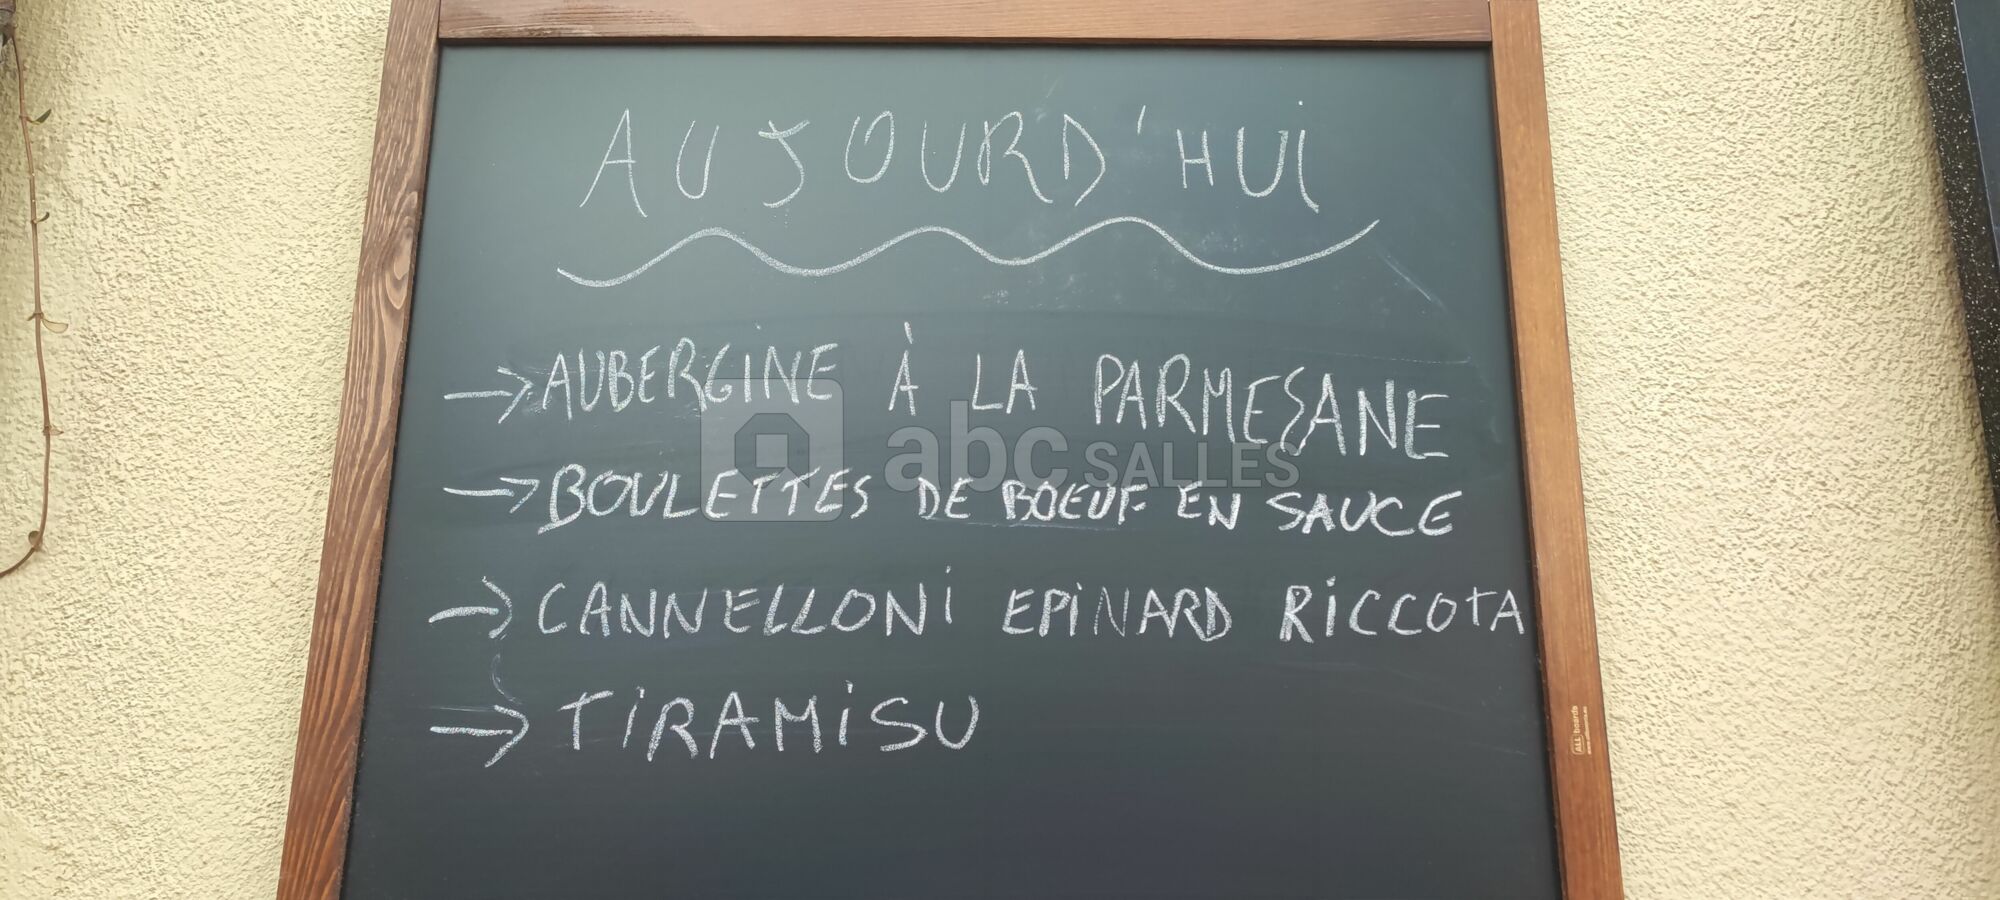 AUJOURD'HUI
→ AUBERGINE À LA PARMESANE
→ BOULETTES DE BOEUF EN SAUCE
→ CANNELLONI EPINARD RICCOTA
→ TIRAMISU
abc SALLES
ALL boards